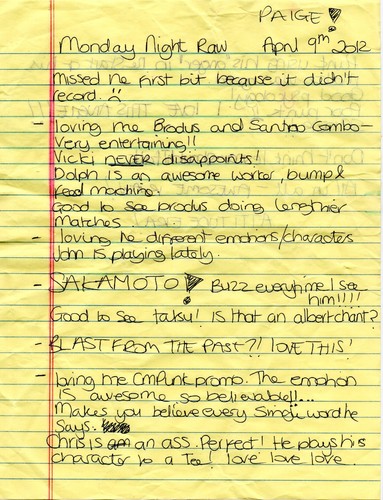 PAIGE!
Monday Night Raw April 9th 2012
missed the first bit because it didn't
record. :(
- loving the Brodus and Santino Combo-
Very entertaining!!
Vicki NEVER disappoints!
Dolph is an awesome worker, bump &
feed machine.
Good to see brodus doing lengthier
matches.
- loving the different emotions/characters
John is playing lately.
- SAKAMOTO! Buzz everytime I see
him!!!!
Good to see taksu! Is that an albert chant?
- BLAST FROM THE PAST?! LOVE THIS!
- loving the CMPunk promo. The emotion
is awesome so believable!!...
Makes you believe every single word he
Says.
Chris is an ass. Perfect! He plays his
character to a Tee! love love love.